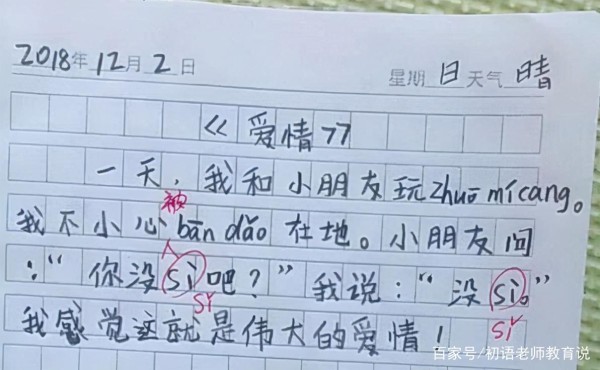 2018年12月2日 星期日天气晴
《爱情》
一天，我和小朋友玩zhuō mícang。
被
我不小心bān dǎo在地。小朋友问
：“你没sì吧？”我说：“没sì。”
sǐ sǐ
我感觉这就是伟大的爱情！
百家号/初语老师教育说